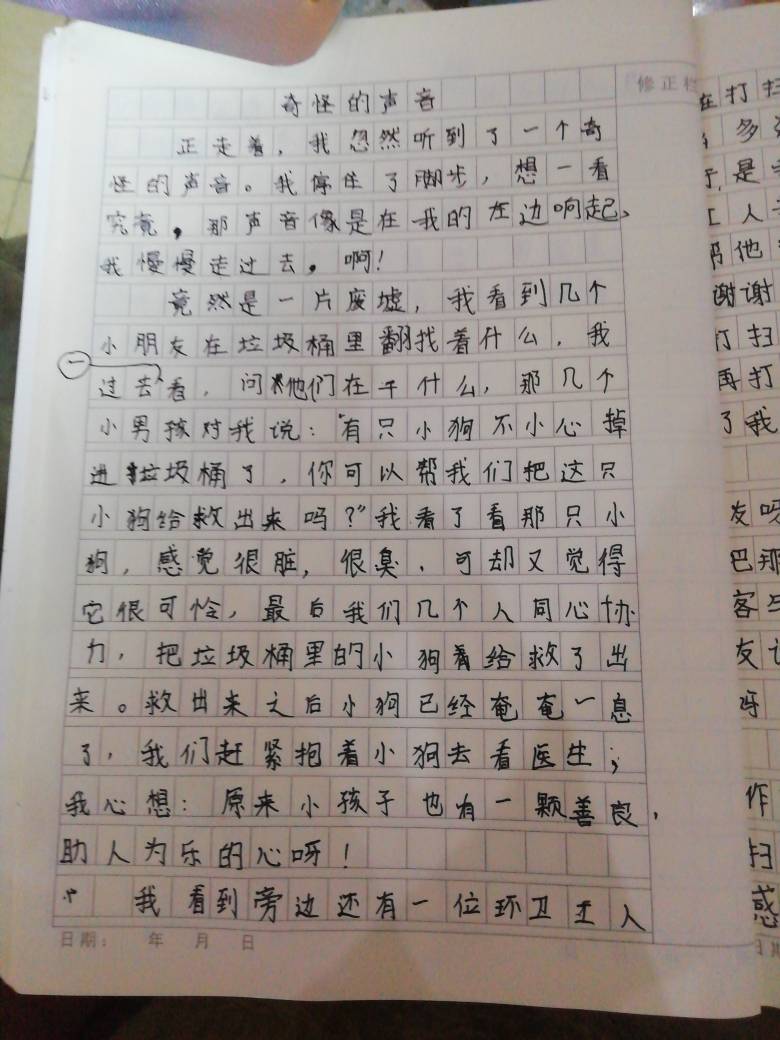 奇怪的声音
正走着，我忽然听到了一个奇
怪的声音。我停住了脚步，想一看
究竟，那声音像是在我的左边响起，
我慢慢走过去，啊！
竟然是一片废墟，我看到几个
小朋友在垃圾桶里翻找着什么，我
一
过去看，问他们在干什么，那几个
小男孩对我说：“有只小狗不小心掉
进垃圾桶了，你可以帮我们把这只
小狗给救出来吗？”我看了看那只小
狗，感觉很脏，很臭，可却又觉得
它很可怜，最后我们几个人同心协
力，把垃圾桶里的小狗着给救了出
来。救出来之后小狗已经奄奄一息
了，我们赶紧抱着小狗去看医生；
我心想：原来小孩子也有一颗善良，
助人为乐的心呀！
我看到旁边还有一位环卫工人
日期： 年 月 日
修正栏
在打扫
多
是
人
帮他
谢谢
打扫
再打
了我
友呀
巴那
客与
友
呀
作
扫
惑